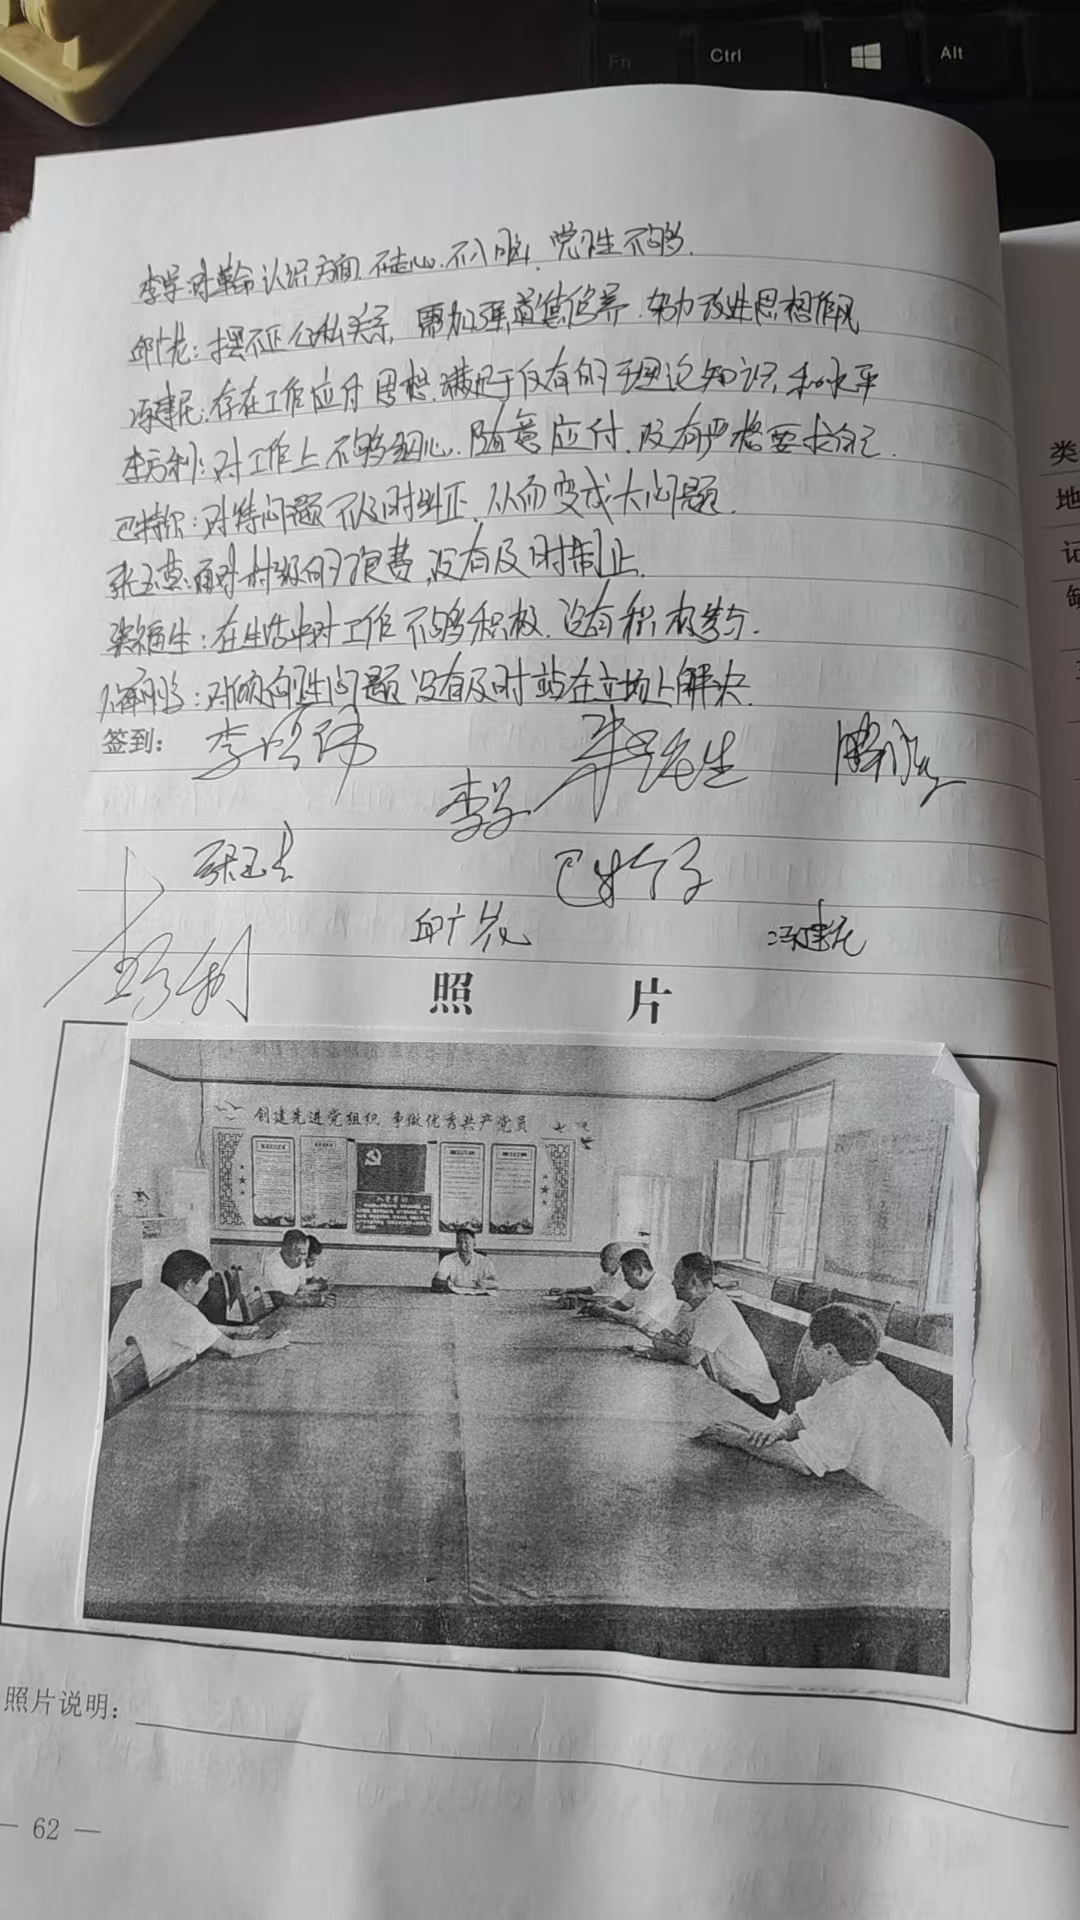 Fn Ctrl Alt
李学:对革命认识方面,不走心.不入脑,党性不够.
邱广龙:摆不正公私关系,需加强道德修养.努力改进思想作风
冯建尼:存在工作应付思想.满足于仅有的理论知识,和水平
李方利:对工作上不够细心.随意应付.没有严格要求自己.
巴特尔:对待问题不及时纠正.从而变成大问题.
张玉:面对村级的浪费,没有及时制止.
福生:在生活中对工作不够积极.没有积极参与.
:对倾向性问题没有及时站在立场上解决.
签到:
李学
张玉
邱广龙 冯建尼
照 片
创建先进党组织 争做优秀共产党员
照片说明:
— 62 —
类
地
记